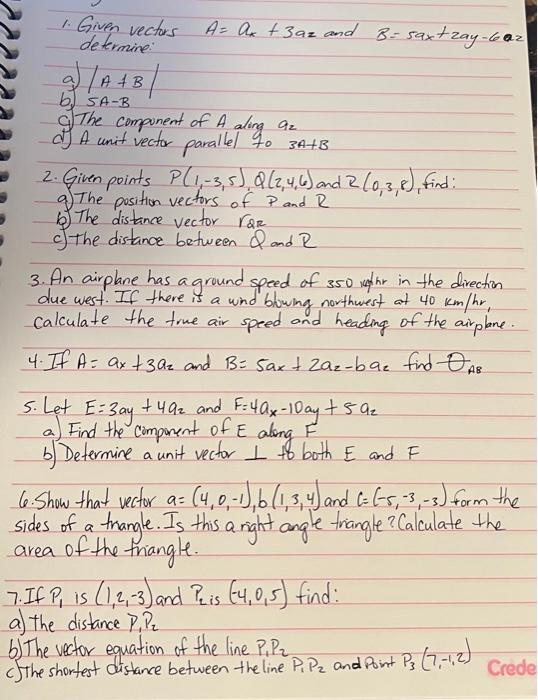 1. Given vectors A = ax + 3az and B = 5ax+2ay-6az
determine:
a) |A+B|
b) 5A-B
c) The component of A along az
d) A unit vector parallel to 3A+B
2. Given points P(1,-3,5), Q(2,4,6) and R(0,3,8), find:
a) The position vectors of P and R
b) The distance vector rQR
c) The distance between Q and R
3. An airplane has a ground speed of 350 km/hr in the direction
due west. If there is a wind blowing northwest at 40 km/hr,
calculate the true air speed and heading of the airplane.
4. If A = ax +3az and B= 5ax + 2az-6az find θAB
5. Let E=3ay +4az and F=4ax-10ay+5az
a) Find the component of E along F
b) Determine a unit vector ⊥ to both E and F
6. Show that vector a= (4,0,-1), b(1,3,4) and C=(-5,-3,-3) form the
sides of a triangle. Is this a right angle triangle? Calculate the
area of the triangle.
7. If P1 is (1,2,-3) and P2 is (-4,0,5) find:
a) the distance P1P2
b) The vector equation of the line P1P2
c) The shortest distance between the line P1P2 and Point P3 (7,-1,2)
Crede